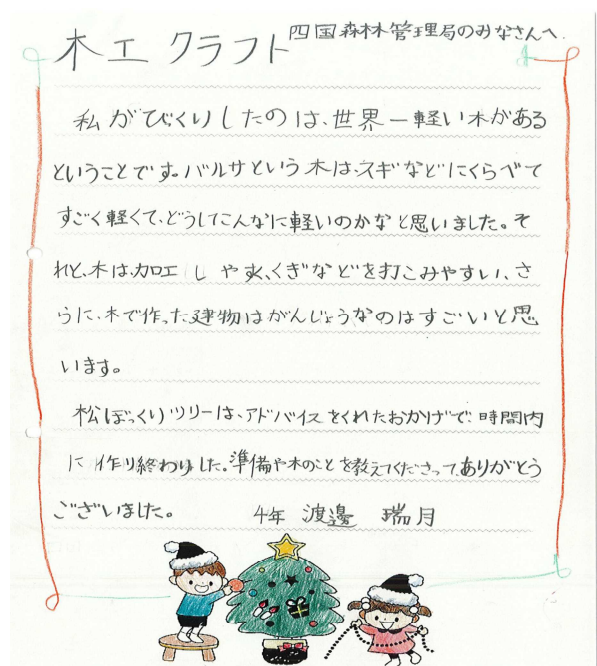 木工クラフト 四国森林管理局のみなさんへ.
私がびっくりしたのは、世界一軽い木がある
ということです。バルサという木は、スギなどにくらべて
すごく軽くて、どうしてこんなに軽いのかなと思いました。そ
れと、木は、加工しやすく、くぎなどを打こみやすい、さ
らに、木で作った建物はがんじょうなのはすごいと思
います。
松ぼっくりツリーは、アドバイスをくれたおかげで、時間内
に作り終わりした。準備や木のことを教えてくださって、ありがとう
ございました。 4年 渡邊 瑞月